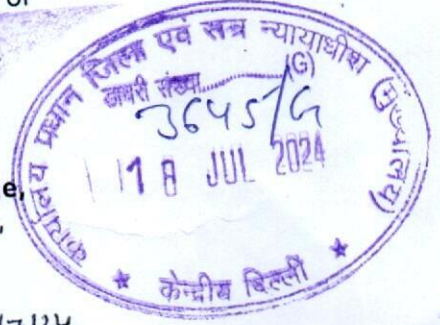 कार्यालय प्रधान जिला एवं सत्र न्यायाधीश (मुख्यालय)
डायरी संख्या (G)
3645/G
18 JUL 2024
केन्द्रीय दिल्ली